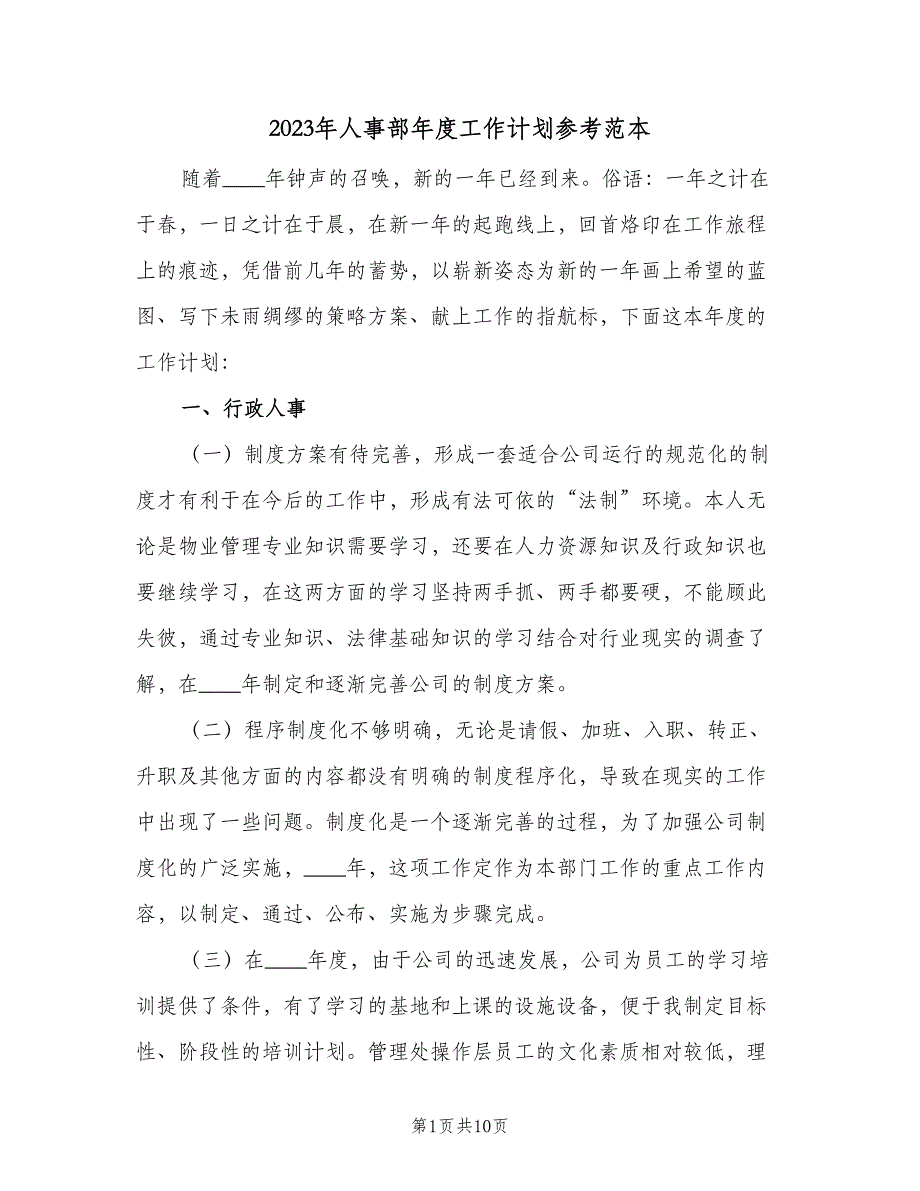 2023年人事部年度工作计划参考范本
随着____年钟声的召唤，新的一年已经到来。俗语：一年之计在
于春，一日之计在于晨，在新一年的起跑线上，回首烙印在工作旅程
上的痕迹，凭借前几年的蓄势，以崭新姿态为新的一年画上希望的蓝
图、写下未雨绸缪的策略方案、献上工作的指航标，下面这本年度的
工作计划：
一、行政人事
（一）制度方案有待完善，形成一套适合公司运行的规范化的制
度才有利于在今后的工作中，形成有法可依的“法制”环境。本人无
论是物业管理专业知识需要学习，还要在人力资源知识及行政知识也
要继续学习，在这两方面的学习坚持两手抓、两手都要硬，不能顾此
失彼，通过专业知识、法律基础知识的学习结合对行业现实的调查了
解，在____年制定和逐渐完善公司的制度方案。
（二）程序制度化不够明确，无论是请假、加班、入职、转正、
升职及其他方面的内容都没有明确的制度程序化，导致在现实的工作
中出现了一些问题。制度化是一个逐渐完善的过程，为了加强公司制
度化的广泛实施，____年，这项工作定作为本部门工作的重点工作内
容，以制定、通过、公布、实施为步骤完成。
（三）在____年度，由于公司的迅速发展，公司为员工的学习培
训提供了条件，有了学习的基地和上课的设施设备，便于我制定目标
性、阶段性的培训计划。管理处操作层员工的文化素质相对较低，理
第1页共10页